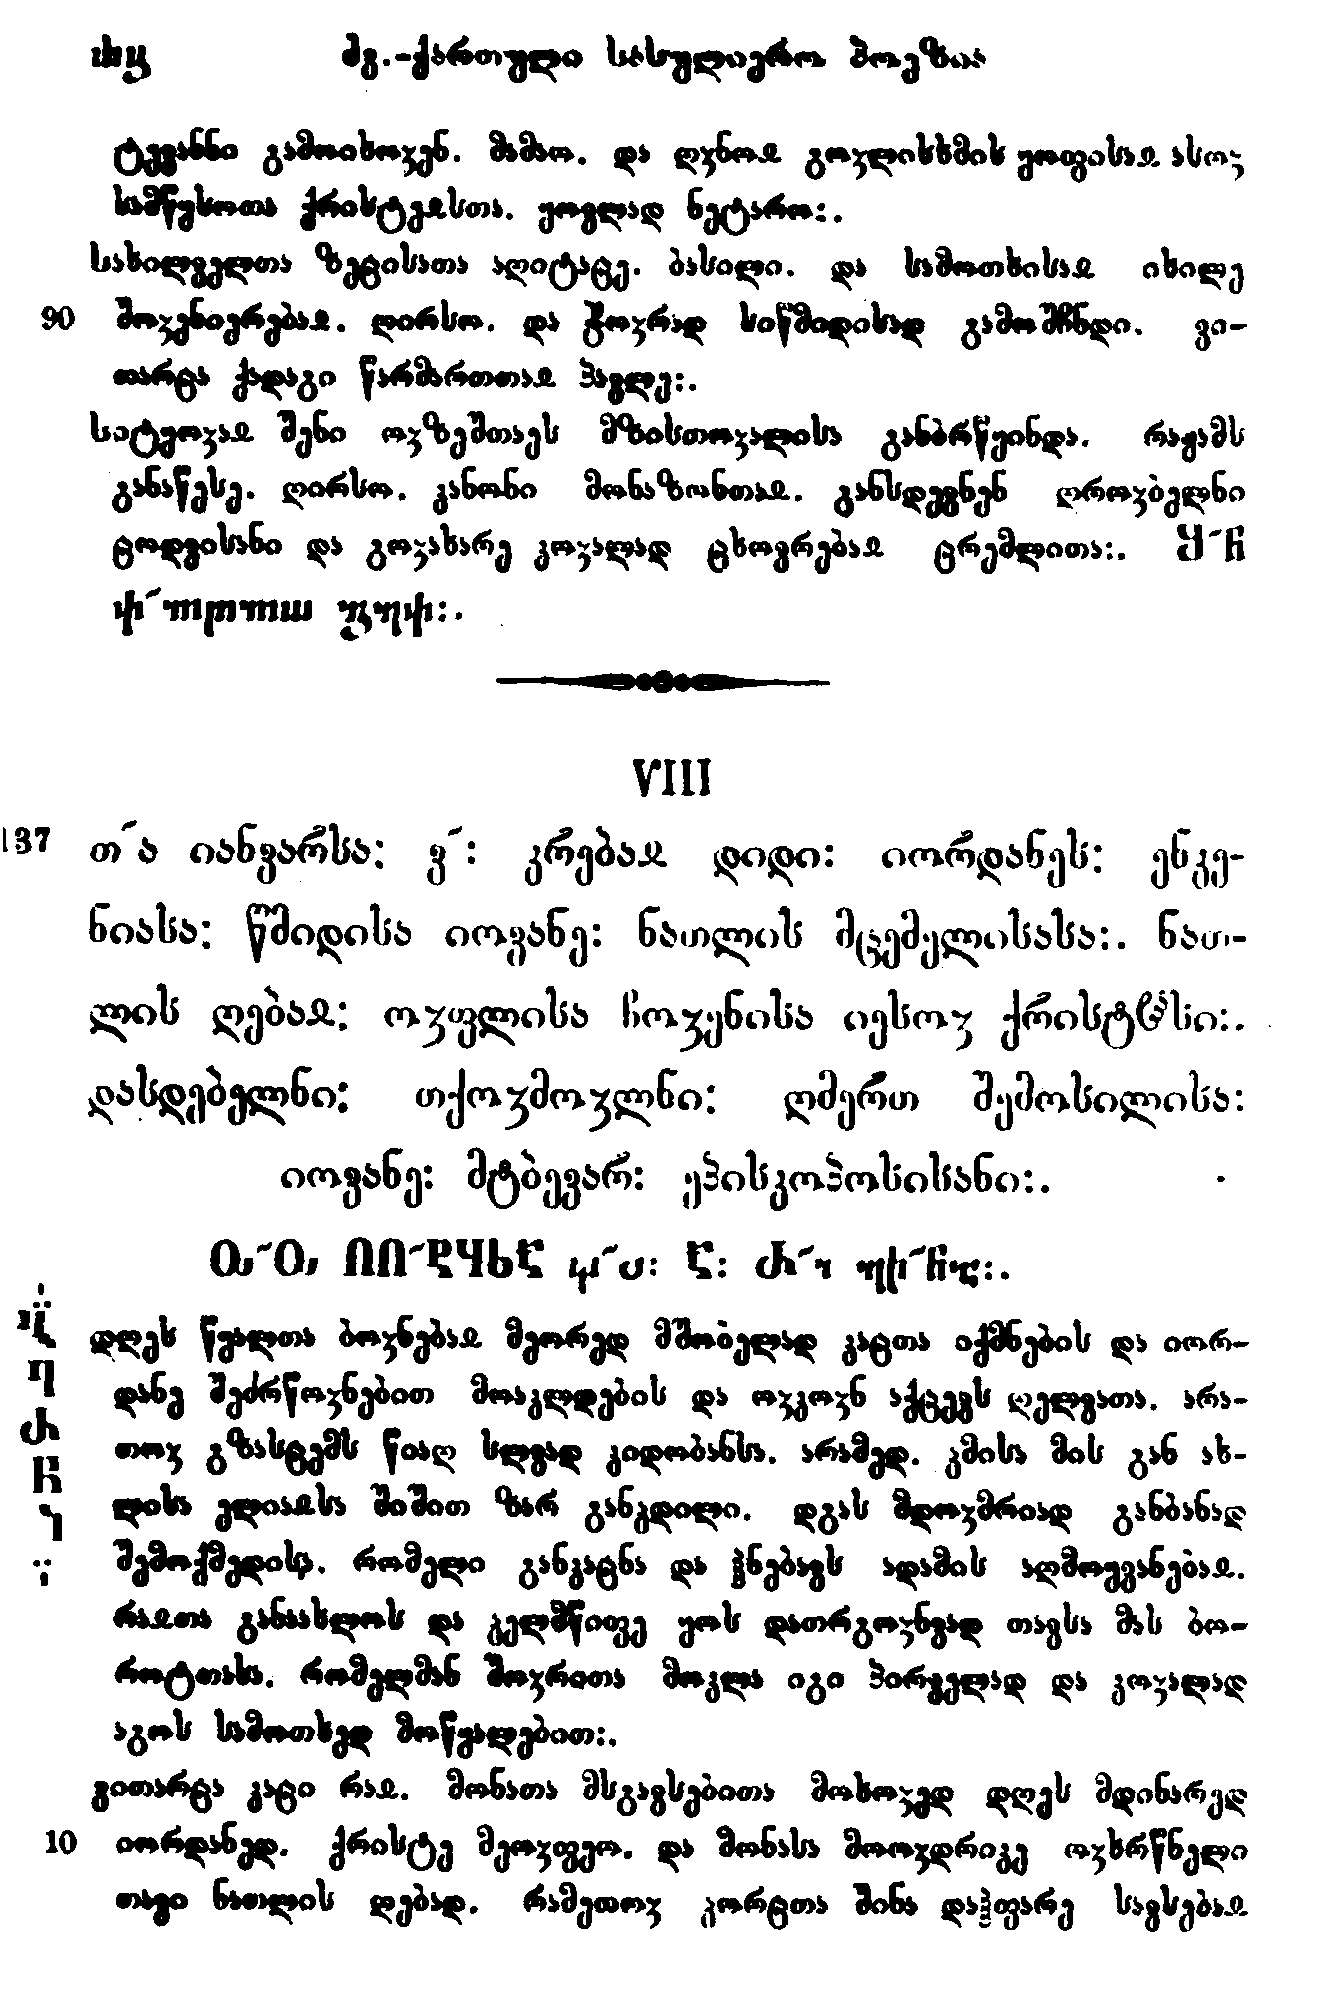 თჟ ძვ.-ქართული სასულიერო პოეზია
ტევანნი გამოიხოჳენ. მამაო. და ღჳნოჲ გოჳლისხმის ყოფისაჲ ასოჳ
სამწყსოთა ქრისტეჲსთა. ყოვლად ნეტარო:.
სახილველთა ზეცისათა აღიტაცე. ბასილი. და სამოთხისაჲ იხილე
90 შოჳენიერებაჲ. ღირსო. და ჭოჳრად სიწმიდისად გამოშჩნდი. ვი-
თარცა ქადაგი წარმართთაჲ პავლე:.
სიტყოჳაჲ შენი ოჳზეშთაეს მზისთოჳალისა განბრწყინდა. რაჟამს
განაწესე. ღირსო. კანონი მონაზონთაჲ. განსდევნენ ღროჳბელნი
ცოდვისანი და გოჳახარე კოჳალად ცხოვრებაჲ ცრემლითა:.
VIII
137 თ˜ა იანვარსა: ვ˜: კრებაჲ დიდი: იორდანეს: ენკე-
ნიასა: წმიდისა იოვანე: ნათლის მცემელისასა:. ნათ-
ლის ღებაჲ: ოჳფლისა ჩოჳენისა იესოჳ ქრისტჱსი:.
დასდებელნი: თქოჳმოჳლნი: ღმერთ შემოსილისა:
იოვანე: მტბევარ: ეპისკოპოსისანი:.
დღეს წყალთა ბოჳნებაჲ მეორედ მშობელად კაცთა იქმნების და იორ-
დანე შეძრწოჳნებით მოაკლდების და ოჳკოჳნ აქცევს ღელვათა. არა-
თოჳ გზასტემს წიაღ სლვად კიდობანსა. არამედ. კმისა მის გან ახ-
ლისა ელიაჲსა შიშით ზარ განკდილი. დგას მდოჳმრიად განბანად
შემოქმედისა. რომელი განკაცნა და ჰნებავს ადამის აღმოყვანებაჲ.
რაჲთა განაახლოს და კელმწიფე ყოს დათრგოჳნვად თავსა მას ბო-
როტთასა. რომელმან შოჳრითა მოკლა იგი პირველად და კოჳალად
აგოს სამოთხედ მოწყალებით:.
ვითარცა კაცი რაჲ. მონათა მსგავსებითა მოხოჳედ დღეს მდინარედ
10 იორდანედ. ქრისტე მეოჳფეო. და მონასა მოოჳდრიკე ოჳხრწნელი
თავი ნათლის ღებად. რამეთოჳ კორცთა შინა დაჰფარე სავსებაჲ